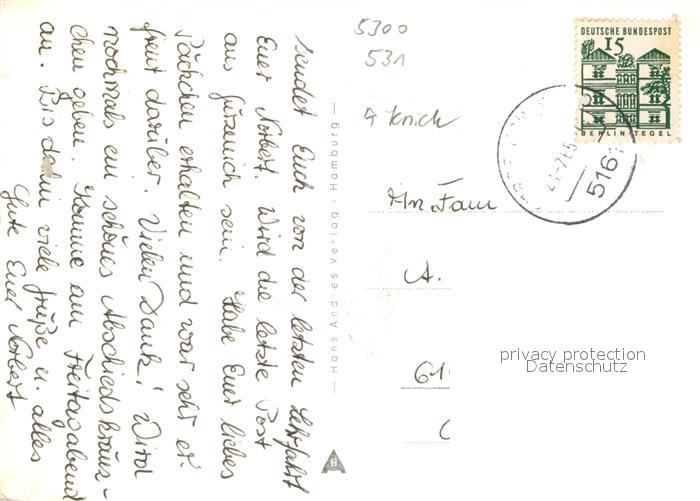 sendet Euch von der letzten Lehrfahrt
Euer Norbert. Wird die letzte Post
aus Gürzenich sein. Habe Euer liebes
Päckchen erhalten und war sehr er-
freut darüber. Vielen Dank! Wird
nochmals ein schönes Abschiedskränz-
chen geben. Komme am Freitagabend
an. Bis dahin viele Grüße u. alles
Gute Euer Norbert
Hans Andres Verlag · Hamburg
5300
531
Knick
DEUTSCHE BUNDESPOST
15
BERLIN-TEGEL
516
An Fam
A.
61
privacy protection
Datenschutz